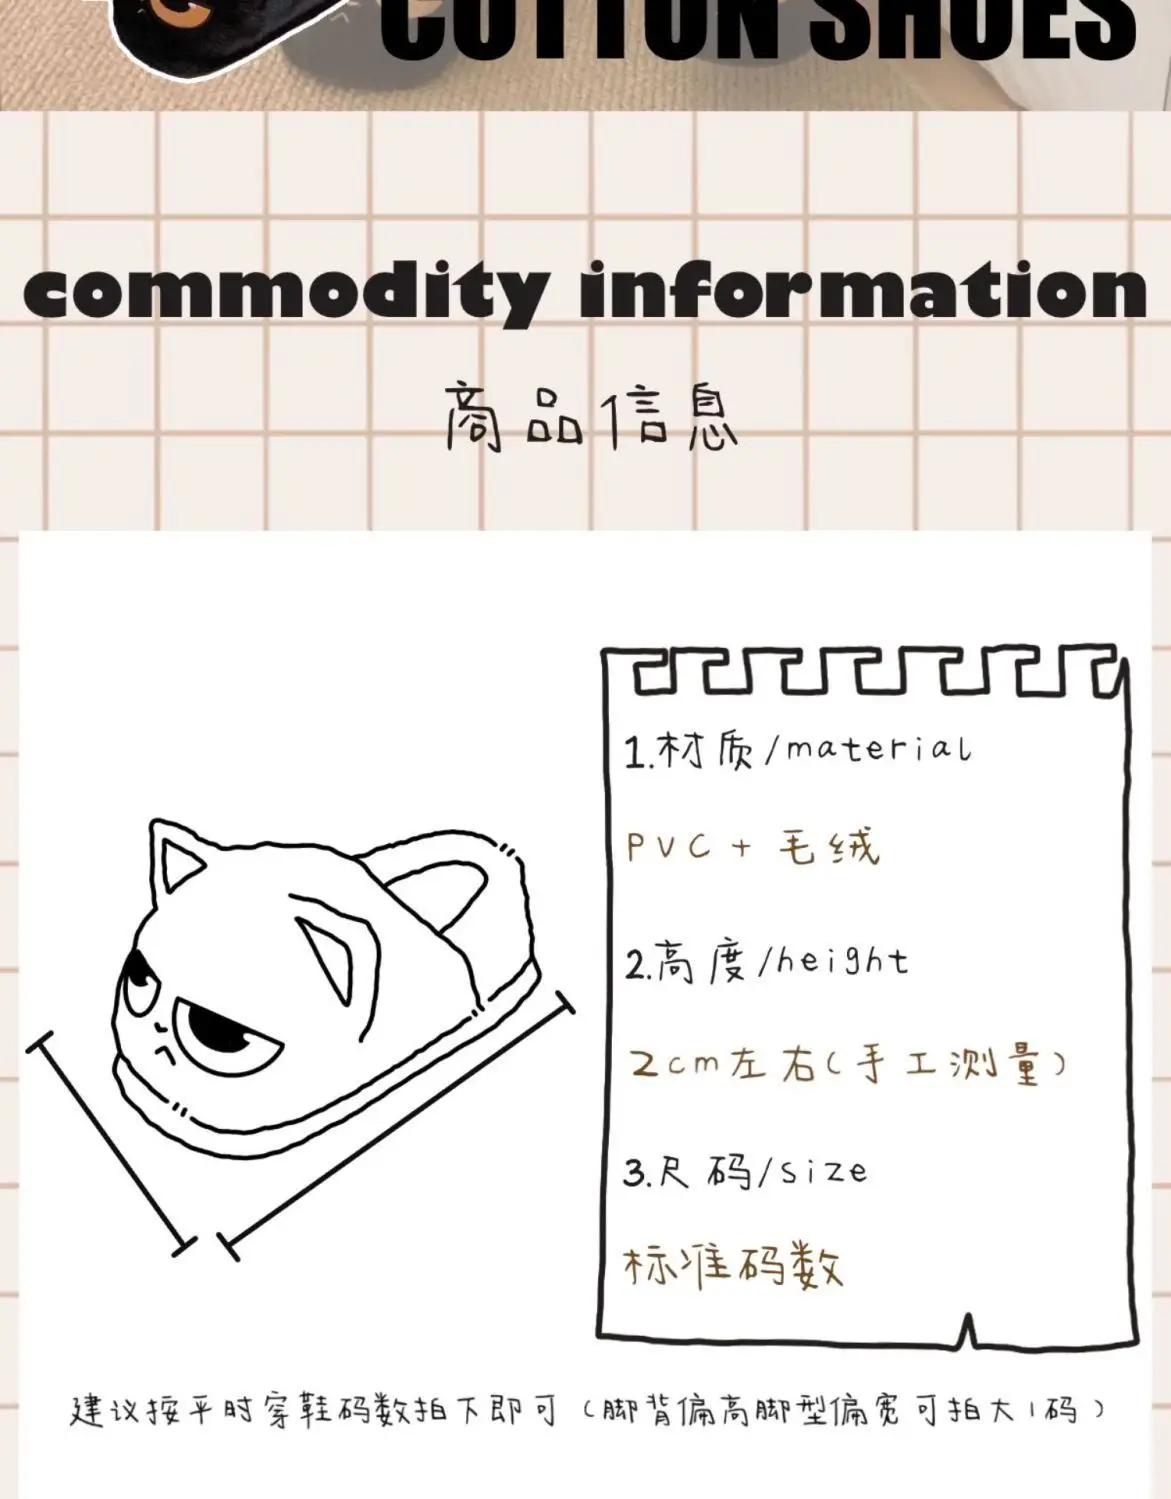 COTTON SHOES
commodity information
商品信息
1.材质/material
PVC+毛绒
2.高度/height
2cm左右(手工测量)
3.尺码/size
标准码数
建议按平时穿鞋码数拍下即可(脚背偏高脚型偏宽可拍大1码)